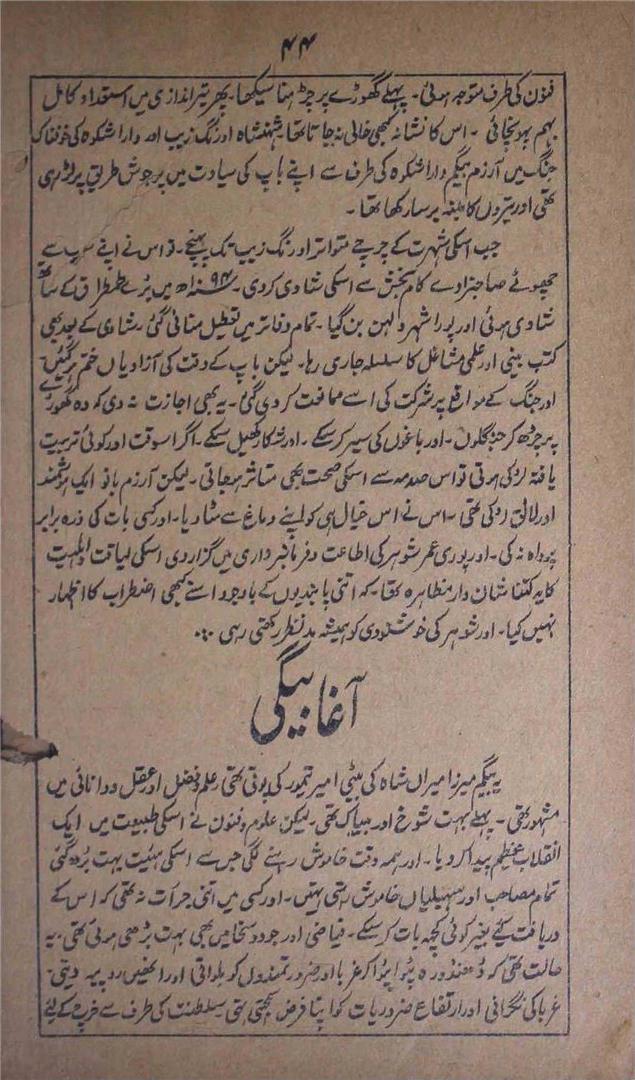 ۴۴
فنون کی طرف متوجہ ہوئی۔ پہلے گھوڑے پر چڑھنا سیکھا۔ پھر تیر اندازی میں استعداد کامل
بہم پہونچائی۔ اس کا نشانہ کبھی خالی نہ جاتا تھا۔ شہنشاہ اورنگ زیب اور دارا شکوہ کی خوفناک
جنگ میں آرزم بیگم دارا شکوہ کی طرف سے اپنے باپ کی سیادت میں پر جوش طریق پر لڑ رہی
تھی اور تیروں کا مینھ برسا رکھا تھا۔
جب اسکی شہرت کے چرچے متواتر اورنگ زیب تک پہنچے۔ تو اس نے اپنے سب سے
چھوٹے صاحبزادے کام بخش سے اسکی شادی کر دی۔ ۱۰۹۲ھ میں بڑے طمطراق کے ساتھ
شادی ہوئی اور پورا شہر دلہن بن گیا۔ تمام دفاتر میں تعطیل منائی گئی۔ شادی کے بعد بھی
کتب بینی اور علمی مشاغل کا سلسلہ جاری رہا۔ لیکن باپ کے وقت کی آزادیاں ختم ہو گئیں
اور جنگ کے مواقع پر شرکت کی اسے ممانعت کر دی گئی۔ یہ بھی اجازت نہ دی کہ وہ گھوڑے
پر چڑھ کر جنگلوں۔ اور باغوں کی سیر کر سکے۔ اور شکار کھیل سکے۔ اگر اسوقت اور کوئی تربیت
یافتہ لڑکی ہوتی تو اس صدمہ سے اسکی صحت بھی متاثر ہو جاتی۔ لیکن آرزم بانو ایک ہوشمند
اور لائق لڑکی تھی۔ اس نے اس خیال ہی کو اپنے دماغ سے مٹا دیا۔ اور کسی بات کی ذرہ برابر
پرواہ نہ کی۔ اور پوری عمر شوہر کی اطاعت و فرمانبرداری میں گزار دی اسکی لیاقت و اہلیت
کا یہ کتنا شان دار مظاہرہ تھا۔ کہ اتنی پابندیوں کے باوجود اسنے کبھی اضطراب کا اظہار
نہیں کیا۔ اور شوہر کی خوشنودی کو ہمیشہ مدنظر رکھتی رہی ۔۔۔
آغا بیگی
یہ بیگم میرزا میراں شاہ کی بیٹی امیر تیمور کی پوتی تھی۔ علم و فضل اور عقل و دانائی میں
مشہور تھی۔ پہلے بہت شوخ اور بیباک تھی۔ لیکن علوم و فنون نے اسکی طبیعت میں ایک
انقلاب عظیم پیدا کر دیا۔ اور ہمہ وقت خاموش رہنے لگی جس سے اسکی ہئیت بہت بڑھ گئی
تمام مصاحب اور سہیلیاں خاموش رہتی تھیں۔ اور کسی میں اتنی جرأت نہ تھی کہ اس کے
دریافت کئے بغیر کوئی کچھ بات کر سکے۔ فیاضی اور جود و سخا میں بھی بہت بڑھی ہوئی تھی۔ یہ
حالت تھی کہ ڈھنڈورہ پٹوا پٹوا کر غربا اور ضرورتمندوں کو بلواتی اور انھیں روپیہ دیتی۔
غربا کی نگرانی اور ارتفاع ضروریات کو اپنا فرض سمجھتی تھی سلطنت کی طرف سے خرچ کے لئے